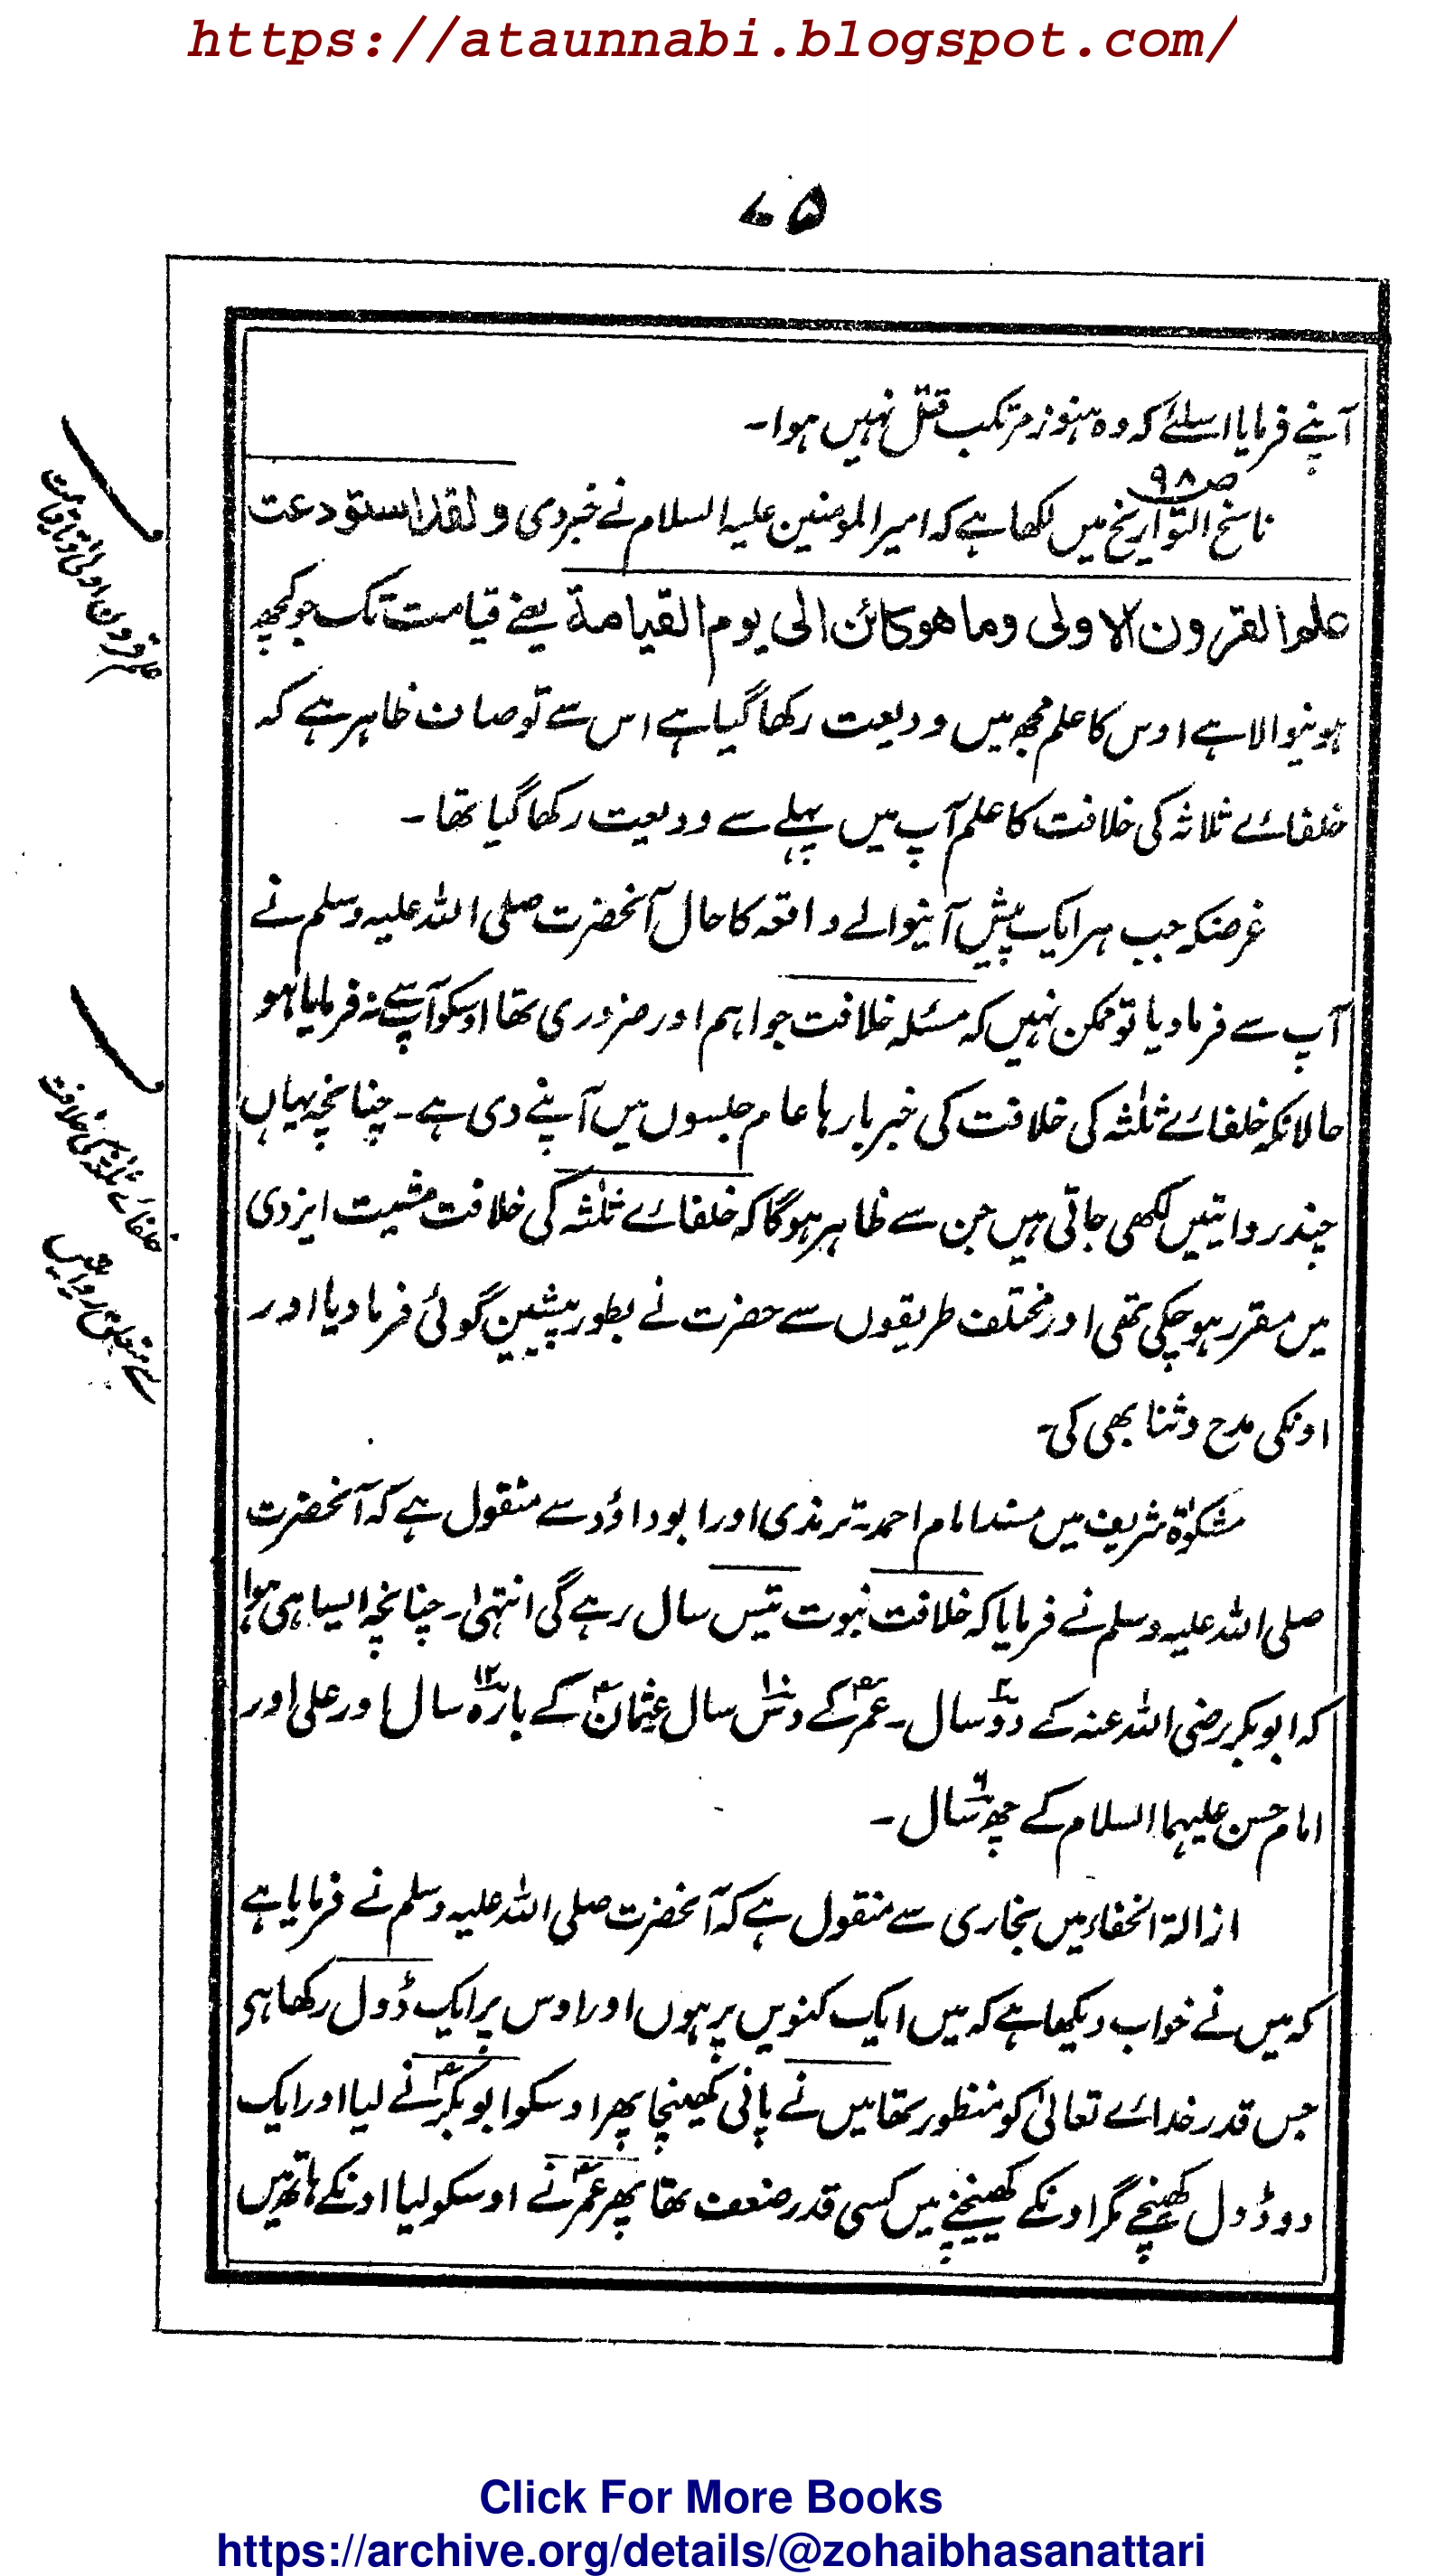 https://ataunnabi.blogspot.com/
۷۵
آپنے فرمایا اسلئے کہ وہ ہنوز مرتکب قتل نہیں ہوا۔
ص۹۸
ناسخ التواریخ میں لکھا ہے کہ امیر المومنین علیہ السلام نے خبر دی ولقد استودعت
علم القرون الاولی وما هو کائن الی یوم القیامة یعنے قیامت تک جو کچھ
ہونیوالا ہے اوس کا علم مجھ میں ودیعت رکھا گیا ہے اس سے تو صاف ظاہر ہے کہ
خلفائے ثلاثہ کی خلافت کا علم آپ میں پہلے سے ودیعت رکھا گیا تھا۔
غرضکہ جب ہر ایک پیش آنیوالے واقعہ کا حال آنحضرت صلی اللہ علیہ وسلم نے
آپ سے فرما دیا تو ممکن نہیں کہ مسئلہ خلافت جو اہم اور ضروری تھا اوسکو آپ سے نہ فرمایا ہو
حالانکہ خلفائے ثلٰثہ کی خلافت کی خبر بارہا عام جلسوں میں آپنے دی ہے۔ چنانچہ یہاں
چند روایتیں لکھی جاتی ہیں جن سے ظاہر ہوگا کہ خلفائے ثلٰثہ کی خلافت مشیت ایزدی
میں مقرر ہو چکی تھی اور مختلف طریقوں سے حضرت نے بطور پیشین گوئی فرما دیا اور
اونکی مدح وثنا بھی کی۔
مشکوٰۃ شریف میں مسند امام احمد ترمذی اور ابوداؤد سے منقول ہے کہ آنحضرت
صلی اللہ علیہ وسلم نے فرمایا کہ خلافت نبوت تیس سال رہے گی انتہیٰ۔ چنانچہ ایسا ہی ہوا
کہ ابوبکر رضی اللہ عنہ کے دو۲ سال۔ عمرؓ کے دس۱۰ سال عثمانؓ کے بارہ۱۲ سال اور علی اور
امام حسن علیہما السلام کے چھ۶ سال۔
ازالۃ الخفاء میں بخاری سے منقول ہے کہ آنحضرت صلی اللہ علیہ وسلم نے فرمایا ہے
کہ میں نے خواب دیکھا ہے کہ میں ایک کنویں پر ہوں اور اوس پر ایک ڈول رکھا ہی
جس قدر خدائے تعالیٰ کو منظور تھا میں نے پانی کھینچا پھر اوسکو ابوبکرؓ نے لیا اور ایک
دو ڈول کھینچے مگر اونکے کھینچنے میں کسی قدر ضعف تھا پھر عمرؓ نے اوسکو لیا اونکے ہاتھ میں
علم قرون اولیٰ تا قیامت
خلفائے ثلٰثہ کی خلافت
سے متعلق روایتیں
Click For More Books
https://archive.org/details/@zohaibhasanattari